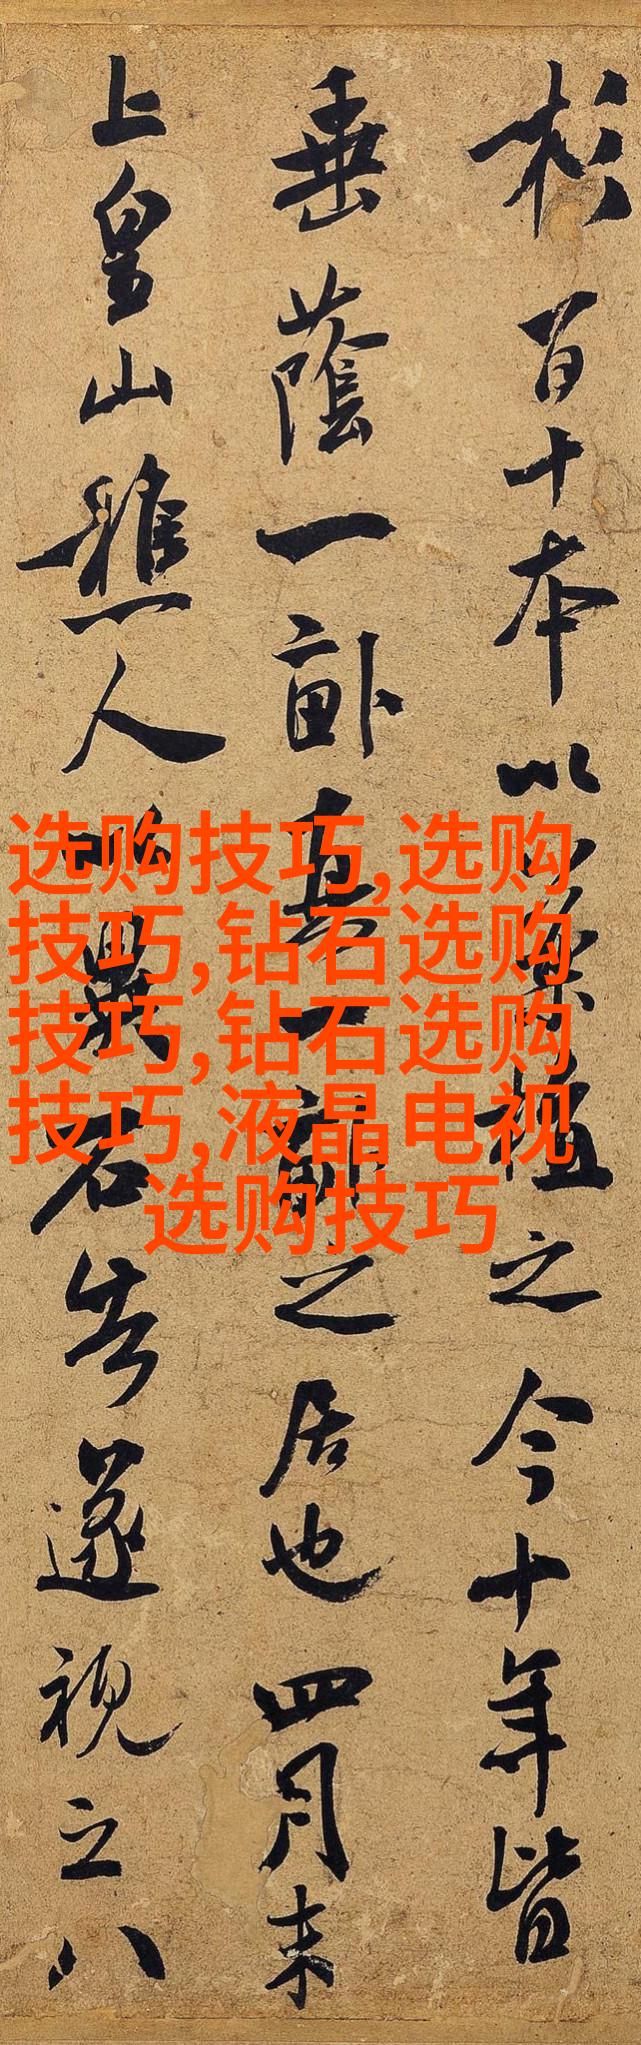 杉百十本以藥植之今十年皆
垂蔭一畝真一畝之居也四月末
上皇山樵人以異石告遂視之八
选购技巧,选购
技巧,钻石选购
技巧,钻石选购
技巧,液晶电视
选购技巧